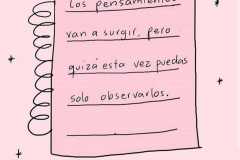 Los pensamientos
van a surgir, pero
quizá esta vez puedas
solo observarlos.